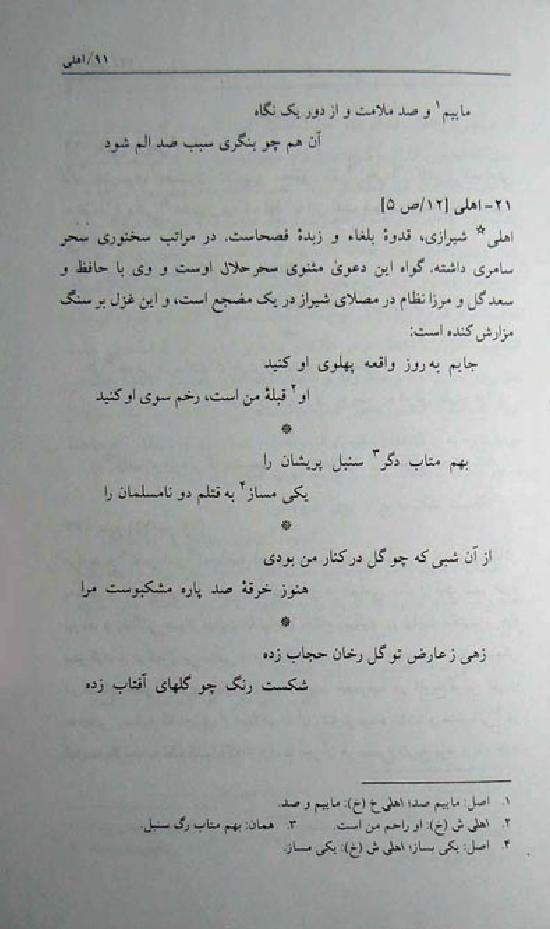 ۹۱/اهلی
ماییم۱ و صد ملامت و از دور یک نگاه
آن هم چو بنگری سبب صد الم شود
۲۱- اهلی [۱۲/ص ۵]
اهلی* شیرازی، قدوهٔ بلغاء و زبدهٔ فصحاست. در مراتب سخنوری سحر
سامری داشته. گواه این دعوی مثنوی سحر حلال اوست و وی با حافظ و
سعد گل و مرزا نظام در مصلای شیراز در یک مضجع است، و این غزل بر سنگ
مزارش کنده است:
جایم به روز واقعه پهلوی او کنید
او۲ قبلهٔ من است، رخم سوی او کنید
*
بهم متاب دگر۳ سنبل پریشان را
یکی مساز۴ به قتلم دو نامسلمان را
*
از آن شبی که چو گل در کنار من بودی
هنوز خرقهٔ صد پاره مشکبوست مرا
*
زهی ز عارض تو گل رخان حجاب زده
شکست رنگ چو گلهای آفتاب زده
۱. اصل: ماییم صد؛ اهلی خ (خ): ماییم و صد.
۲. اهلی ش (خ): او راحم من است ۳. همان: بهم متاب رگ سنبل.
۴. اصل: یکی بساز؛ اهلی ش (خ): یکی مساز.